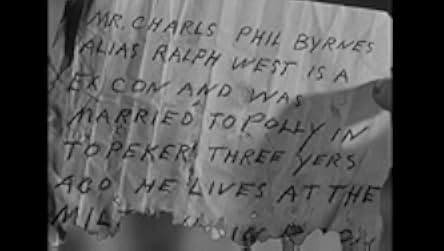 MR. CHARLS PHIL BYRNES
ALIAS RALPH WEST IS A
EX CON AND WAS
MARRIED TO POLLY IN
TOPEKER THREE YERS
AGO HE LIVES AT THE